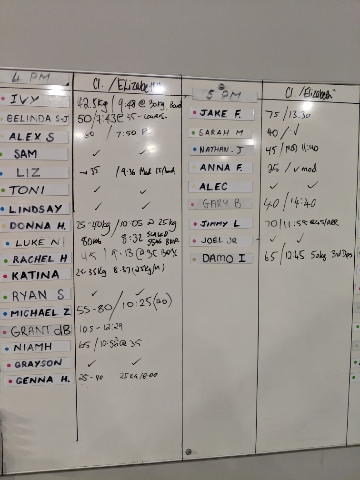 4 PM Cl. / Elizabeth"
IVY 42.5kg / 9:48 @ 30kg
BELINDA S-J 50/7:43@
ALEX S 7:50
SAM ✓ ✓
LIZ 35 / 9:36 Mod
TONI ✓ ✓
LINDSAY ✓ ✓
DONNA H. 25-40kg / 10:05 @ 25kg
LUKE N 80kg 8:32 SCALED
RACHEL H 45 / 9:13 @ 35
KATINA 25-35kg 8:37 (25kg/m)
RYAN S ✓ ✓
MICHAEL Z 55-80 / 10:25
GRANT dB 105 - 12:29
NIAMH 65 / 10:58 @ 35
GRAYSON ✓ ✓
GENNA H. 25-40 25kg/8:00
5 PM Cl / Elizabeth"
JAKE F. 75 / 13:30
SARAH M 40 / ✓
NATHAN. J 45 / 11:40
ANNA F. 25 / ✓ mod
ALEC ✓ ✓
GARY B 40 / 14:40
JIMMY L 70 / 11:55
JOEL JR ✓ ✓
DAMO I 65 / 12:45 50kg